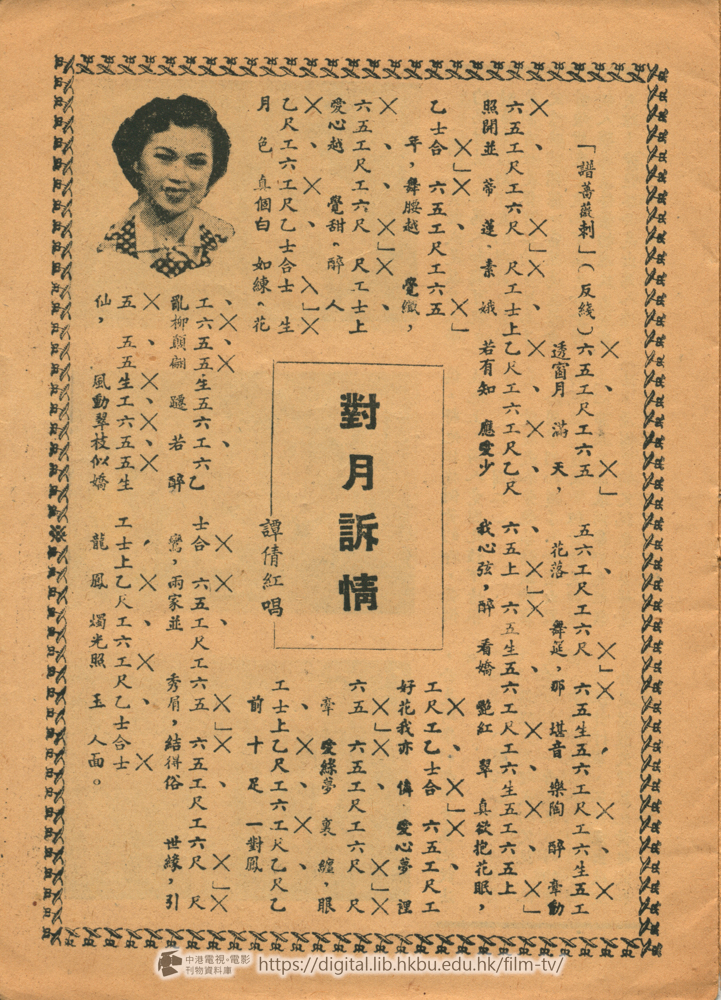 「譜薔薇刺」(反綫)六五工尺工六五 五六工尺工六尺 六五生五六工尺工六生五工
透窗月 滿 天, 花落 舞筵,那 堪音 樂陶 醉 牽動
六五工尺工六尺 尺工士上乙尺工六工尺乙尺 六五上 六五生五六工尺工六生五工六五上
照開並 蒂 蓮.素 娥 若有知 應愛少 我心弦,醉 看嬌 艷紅 翠 真欲抱花眠,
乙士合 六五工尺工六五
年,舞腰越 覺纖,
六五工尺工六尺 尺工士上
愛心越 覺甜。醉 人
乙尺工六工尺乙士合士 生
月 色 真個白 如練。花
對月訴情
譚倩紅唱
工尺工乙士合 六五工尺工
好花我亦 愛心夢
六五 六五工尺工六尺 尺
牽 愛絲夢 裏 纏,眼
工士上乙尺工六工尺乙尺乙
前 十 足 一對鳳
工六五五生五六工六乙
亂柳顛翩 躚 若 醉
士合 六五工尺工六五 六五工尺工六尺 尺
鸞,兩家並 秀眉,結拼俗 世緣,引
五 五五生工六五五生
仙, 風動翠枝似嬌
工士上乙尺工六工尺乙士合士
龍 鳳 燭光照 玉 人面。
中港電視•電影
刊物資料庫
https://digital.lib.hkbu.edu.hk/film-tv/